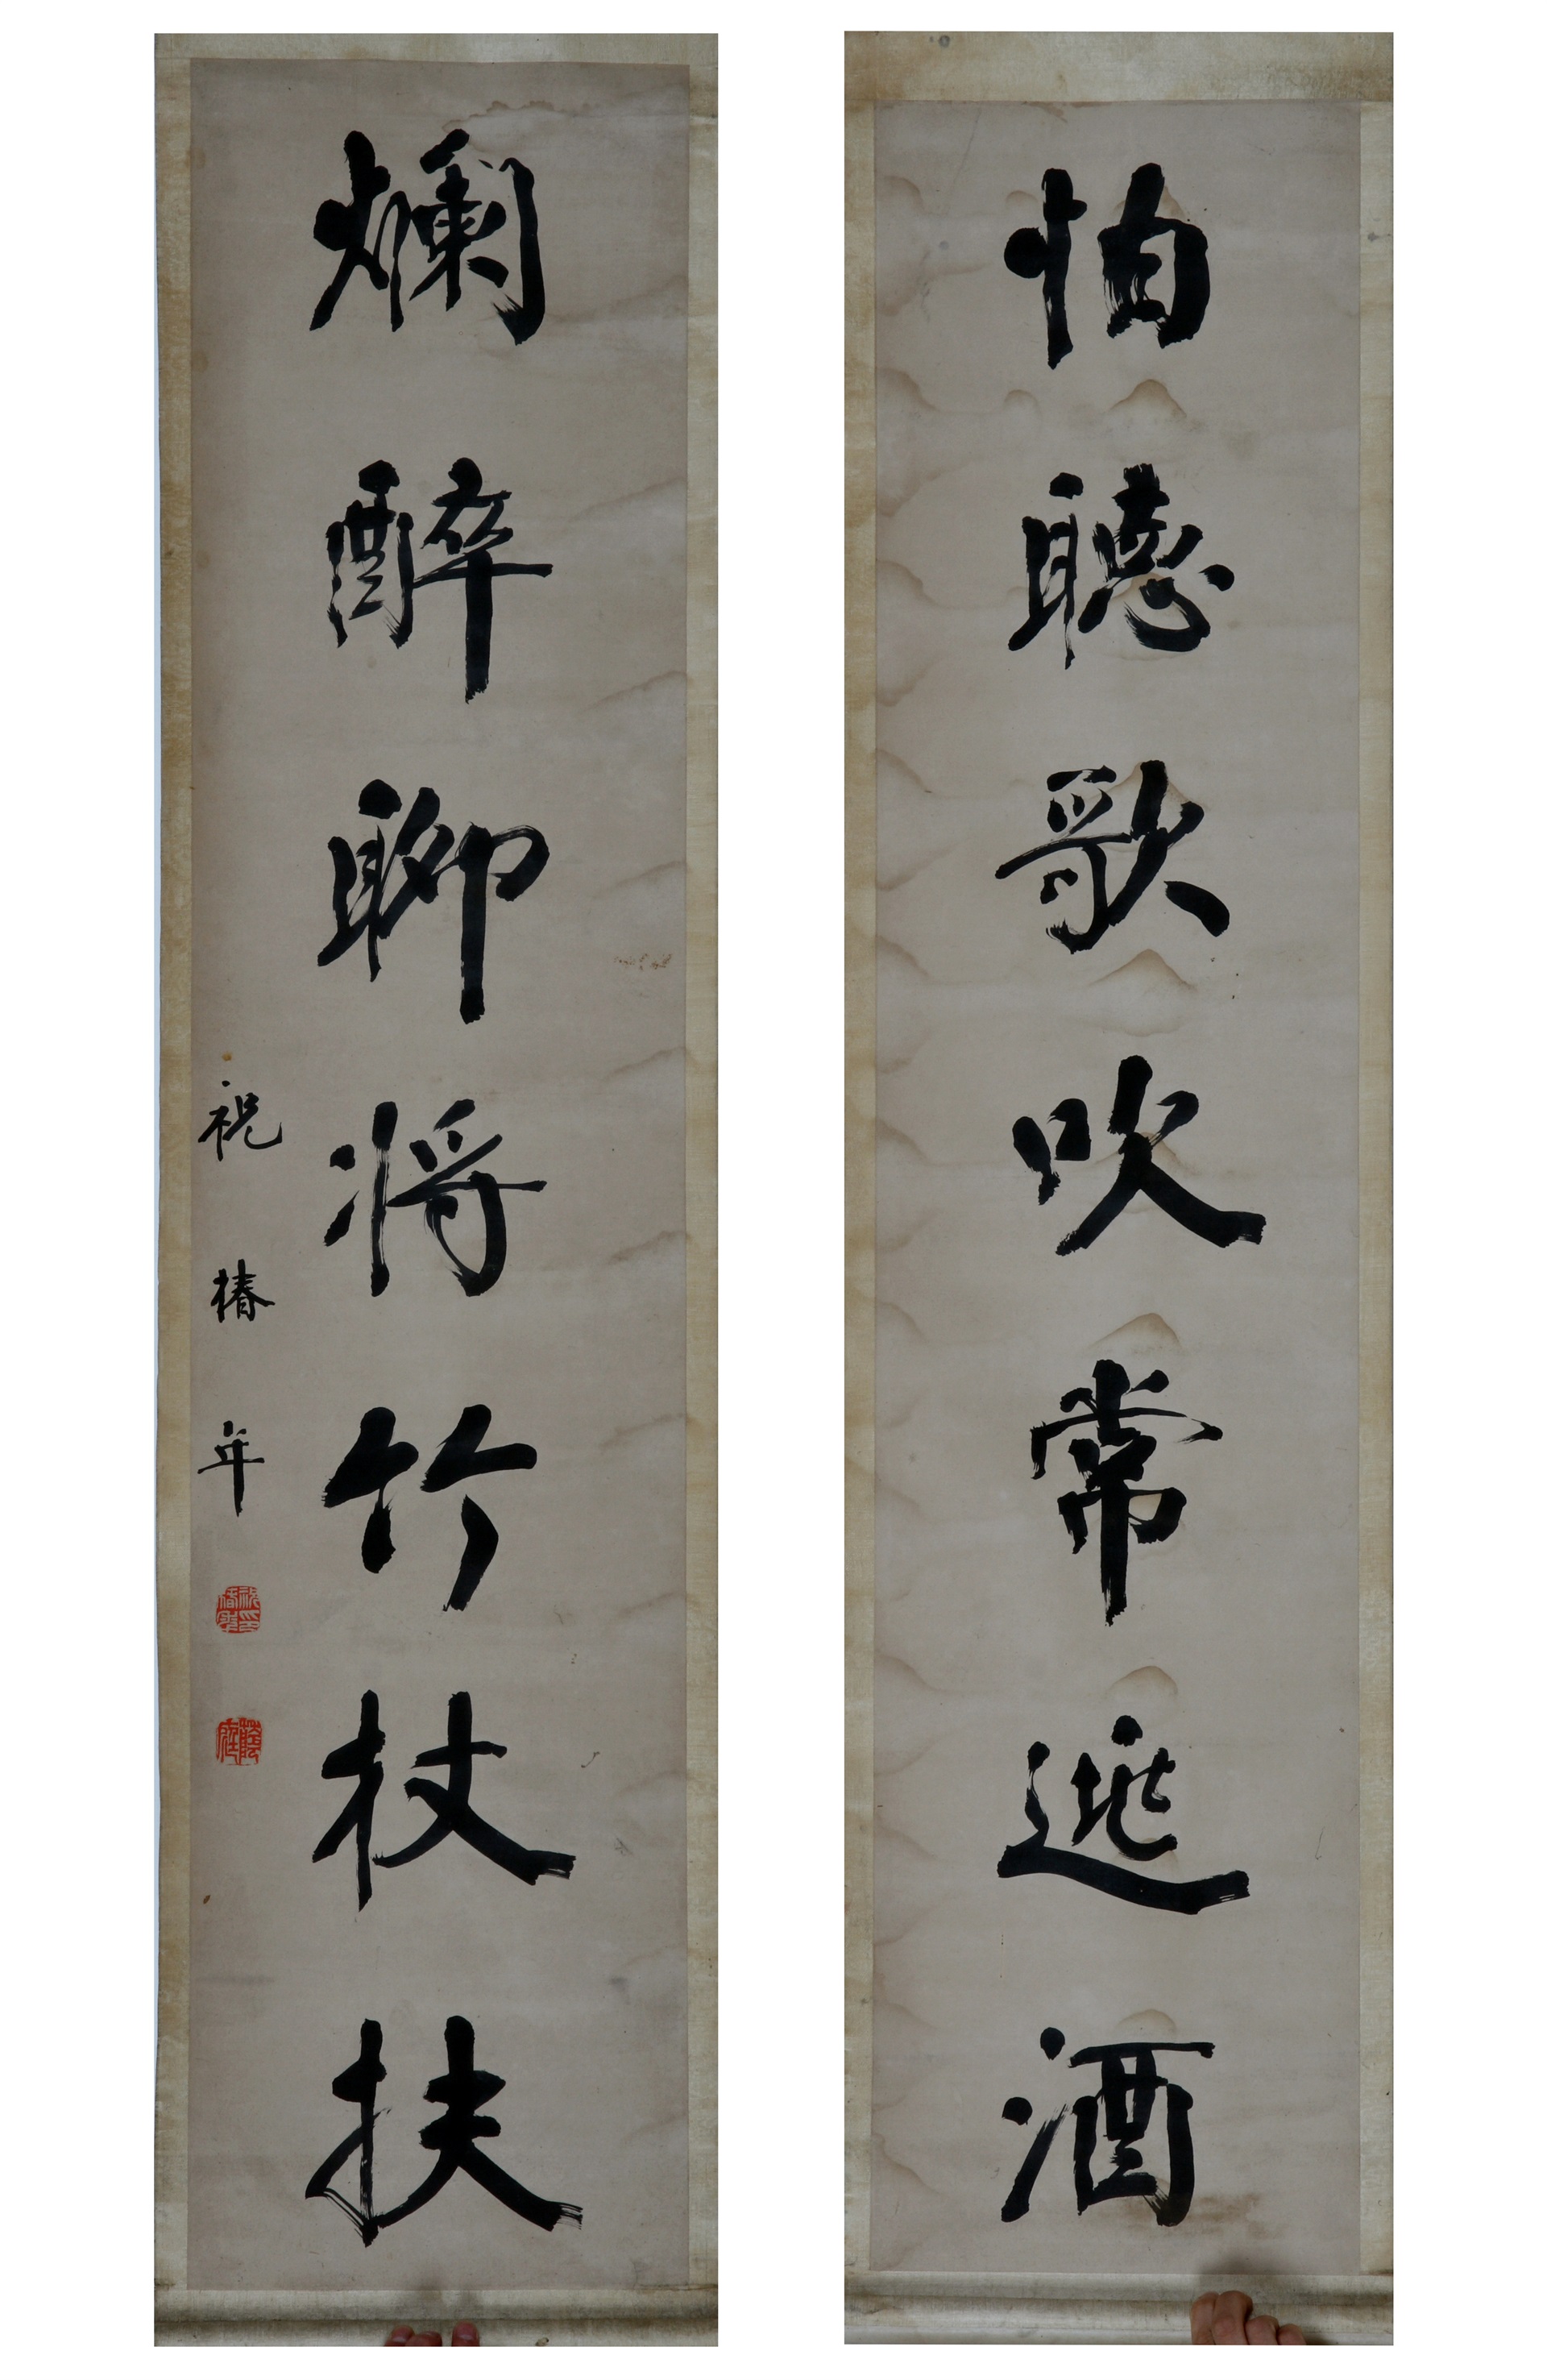 怕聽歌吹常逃酒
爛醉聊将竹杖扶
祝椿年
蔭庭